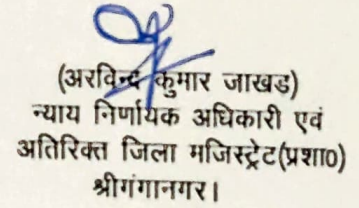 (अरविन्द कुमार जाखड)
न्याय निर्णायक अधिकारी एवं
अतिरिक्त जिला मजिस्ट्रेट(प्रशा0)
श्रीगंगानगर।